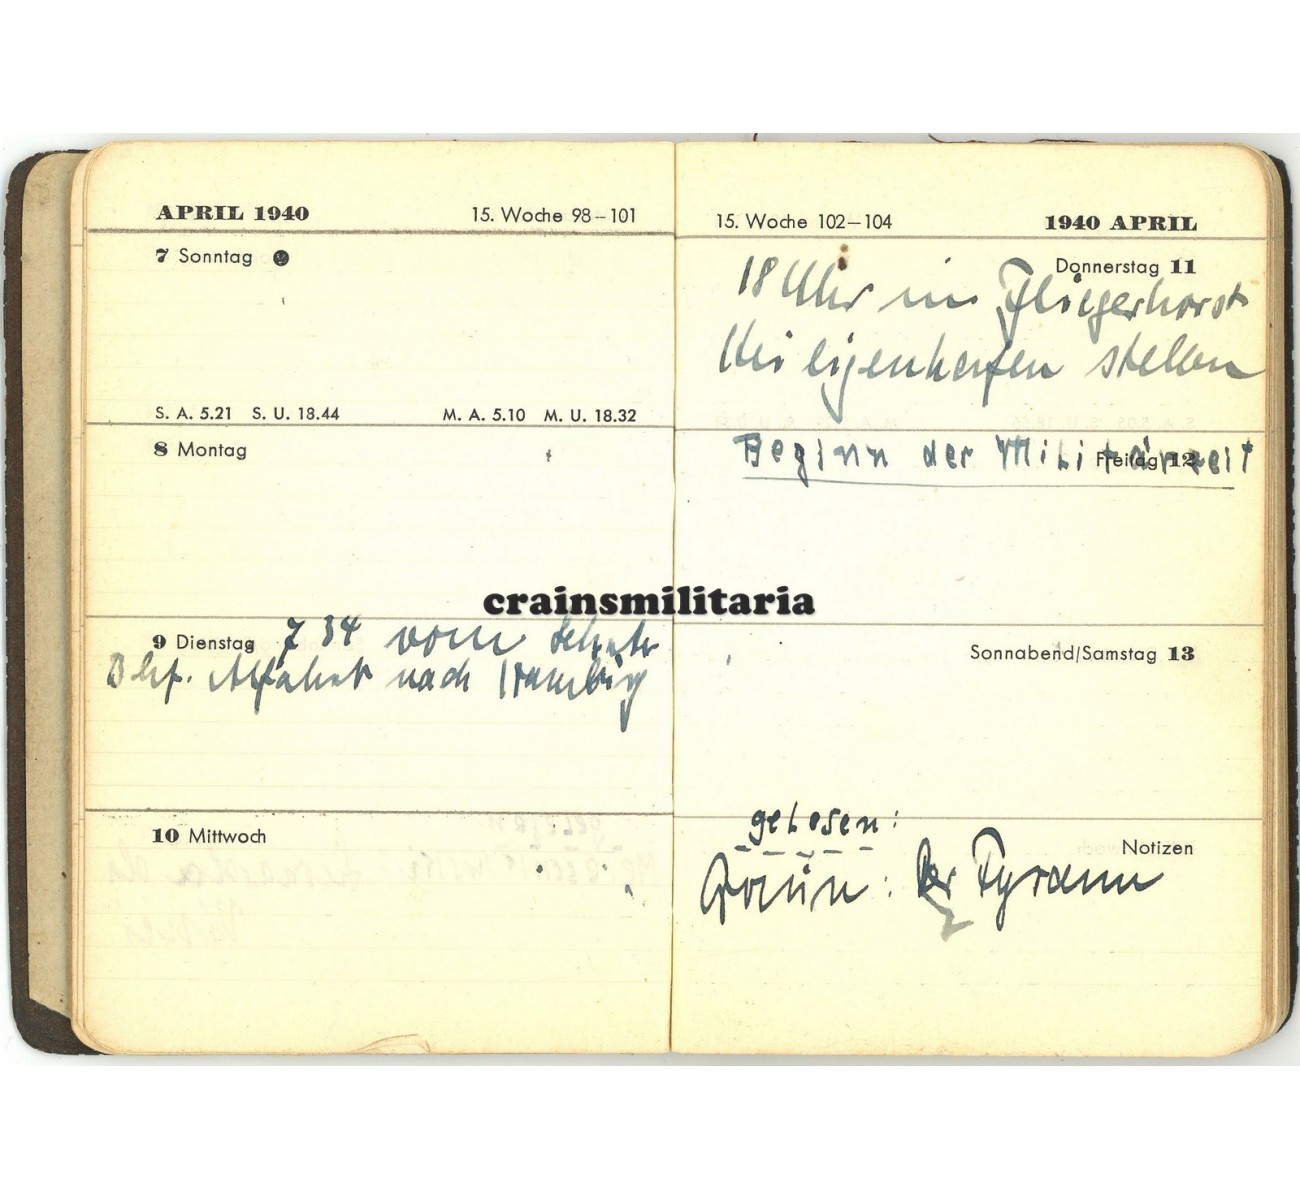 APRIL 1940 15. Woche 98–101
7 Sonntag
S. A. 5.21 S. U. 18.44 M. A. 5.10 M. U. 18.32
8 Montag
9 Dienstag 7 34 vom
Bhf. Abfahrt nach Hamburg
10 Mittwoch
15. Woche 102–104 1940 APRIL
Donnerstag 11
18 Uhr im Fliegerhorst
stellen
Freitag 12
Beginn der Militärzeit
Sonnabend/Samstag 13
Notizen
gelesen:
Der Tyrann
crainsmilitaria